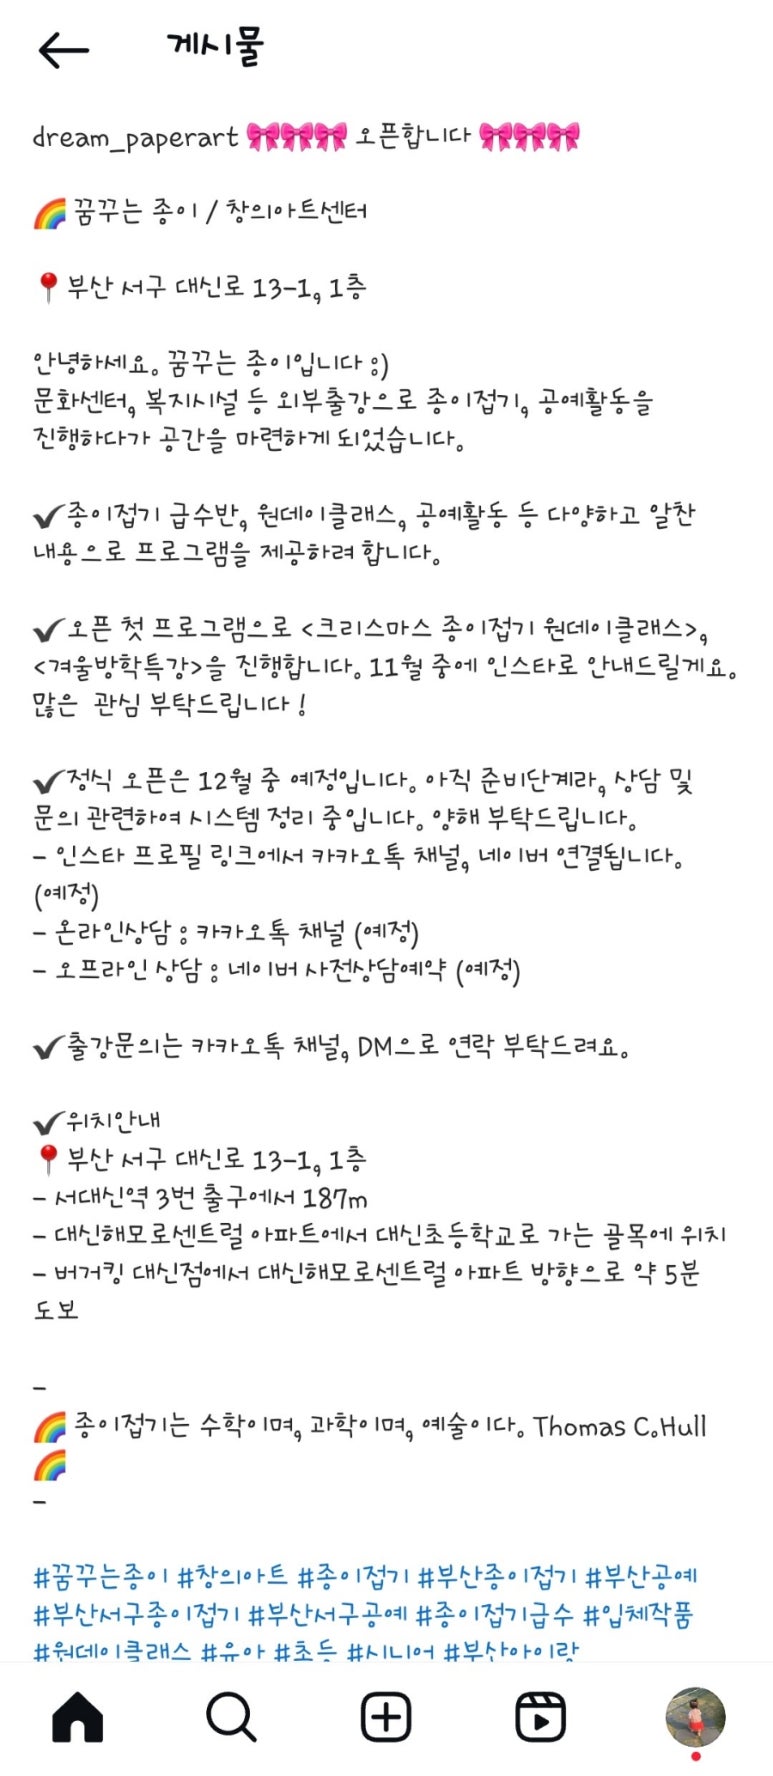 게시물
dream_paperart 🎀🎀🎀 오픈합니다 🎀🎀🎀
🌈 꿈꾸는 종이 / 창의아트센터
📍 부산 서구 대신로 13-1, 1층
안녕하세요. 꿈꾸는 종이입니다 :)
문화센터, 복지시설 등 외부출강으로 종이접기, 공예활동을
진행하다가 공간을 마련하게 되었습니다.
✔️종이접기 급수반, 원데이클래스, 공예활동 등 다양하고 알찬
내용으로 프로그램을 제공하려 합니다.
✔️오픈 첫 프로그램으로 <크리스마스 종이접기 원데이클래스>,
<겨울방학특강>을 진행합니다. 11월 중에 인스타로 안내드릴게요.
많은  관심 부탁드립니다 !
✔️정식 오픈은 12월 중 예정입니다. 아직 준비단계라, 상담 및
문의 관련하여 시스템 정리 중입니다. 양해 부탁드립니다.
- 인스타 프로필 링크에서 카카오톡 채널, 네이버 연결됩니다.
(예정)
- 온라인상담 : 카카오톡 채널 (예정)
- 오프라인 상담 : 네이버 사전상담예약 (예정)
✔️출강문의는 카카오톡 채널, DM으로 연락 부탁드려요.
✔️위치안내
📍 부산 서구 대신로 13-1, 1층
- 서대신역 3번 출구에서 187m
- 대신해모로센트럴 아파트에서 대신초등학교로 가는 골목에 위치
- 버거킹 대신점에서 대신해모로센트럴 아파트 방향으로 약 5분
도보
-
🌈 종이접기는 수학이며, 과학이며, 예술이다. Thomas C.Hull
🌈
-
#꿈꾸는종이 #창의아트 #종이접기 #부산종이접기 #부산공예
#부산서구종이접기 #부산서구공예 #종이접기급수 #입체작품
#원데이클래스 #유아 #초등 #시니어 #부산아이랑